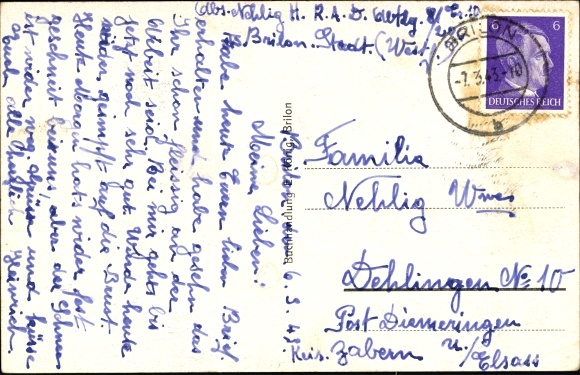 Abs. Nehlig H. R.A.D. Abtlg.
Brilon-Stadt (Westf.)
BRILON
-7.3.43.-10
b
6 6
DEUTSCHES REICH
Buchhandlung E. König, Brilon
Brilon 6.3.43
Meine Lieben!
Habe heute Euren lieben Brief
erhalten und habe gesehen das
Ihr schon fleissig an der
Arbeit seid. Bei mir gehts bis
jetzt noch sehr gut. Wurde heute
wieder geimpft auf die Brust
Heute Morgen hats wieder fest
geschneit bei uns, aber der Schnee
ist wieder weg. Grüsse und küsse
Euch alle herzlich Heinrich
Familia
Nehlig Wwe
Dehlingen No 10
Post Diemeringen
Kreis. Zabern u./Elsass